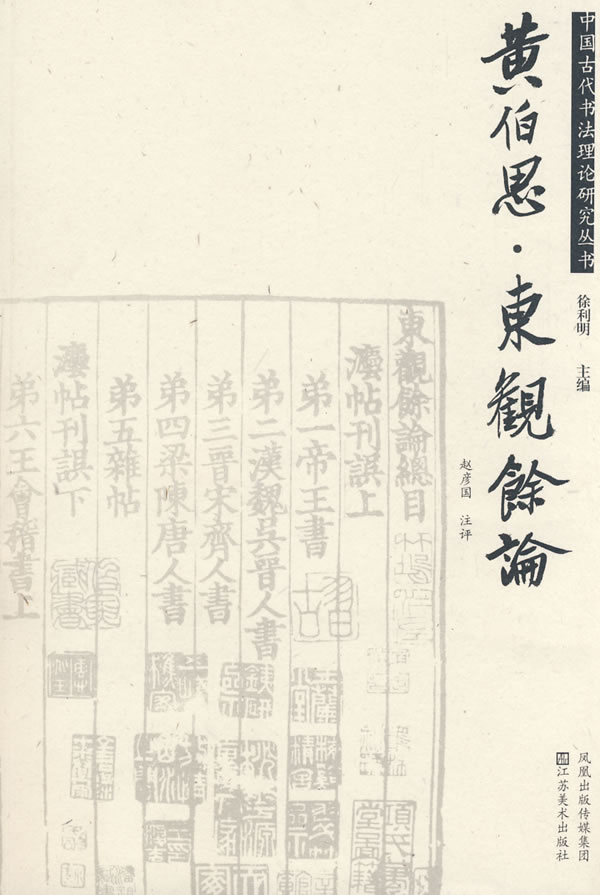 中国古代书法理论研究丛书
徐利明 主编
黄伯思·東觀餘論
赵彦国 注评
東觀餘論總目
灋帖刊誤上
弟一帝王書
弟二漢魏吳晉人書
弟三晉宋齊人書
弟四梁陳唐人書
弟五雜帖
灋帖刊誤下
弟六王會稽書上
凤凰出版传媒集团
江苏美术出版社